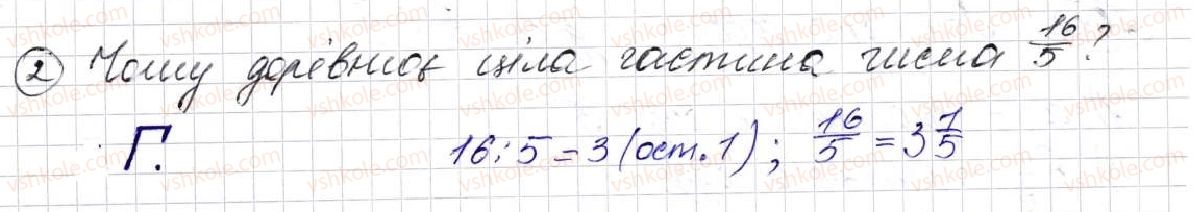 ② Чому дорівнює ціла частина числа 16/5?
Г. 16:5=3 (ост. 1); 16/5 = 3 1/5